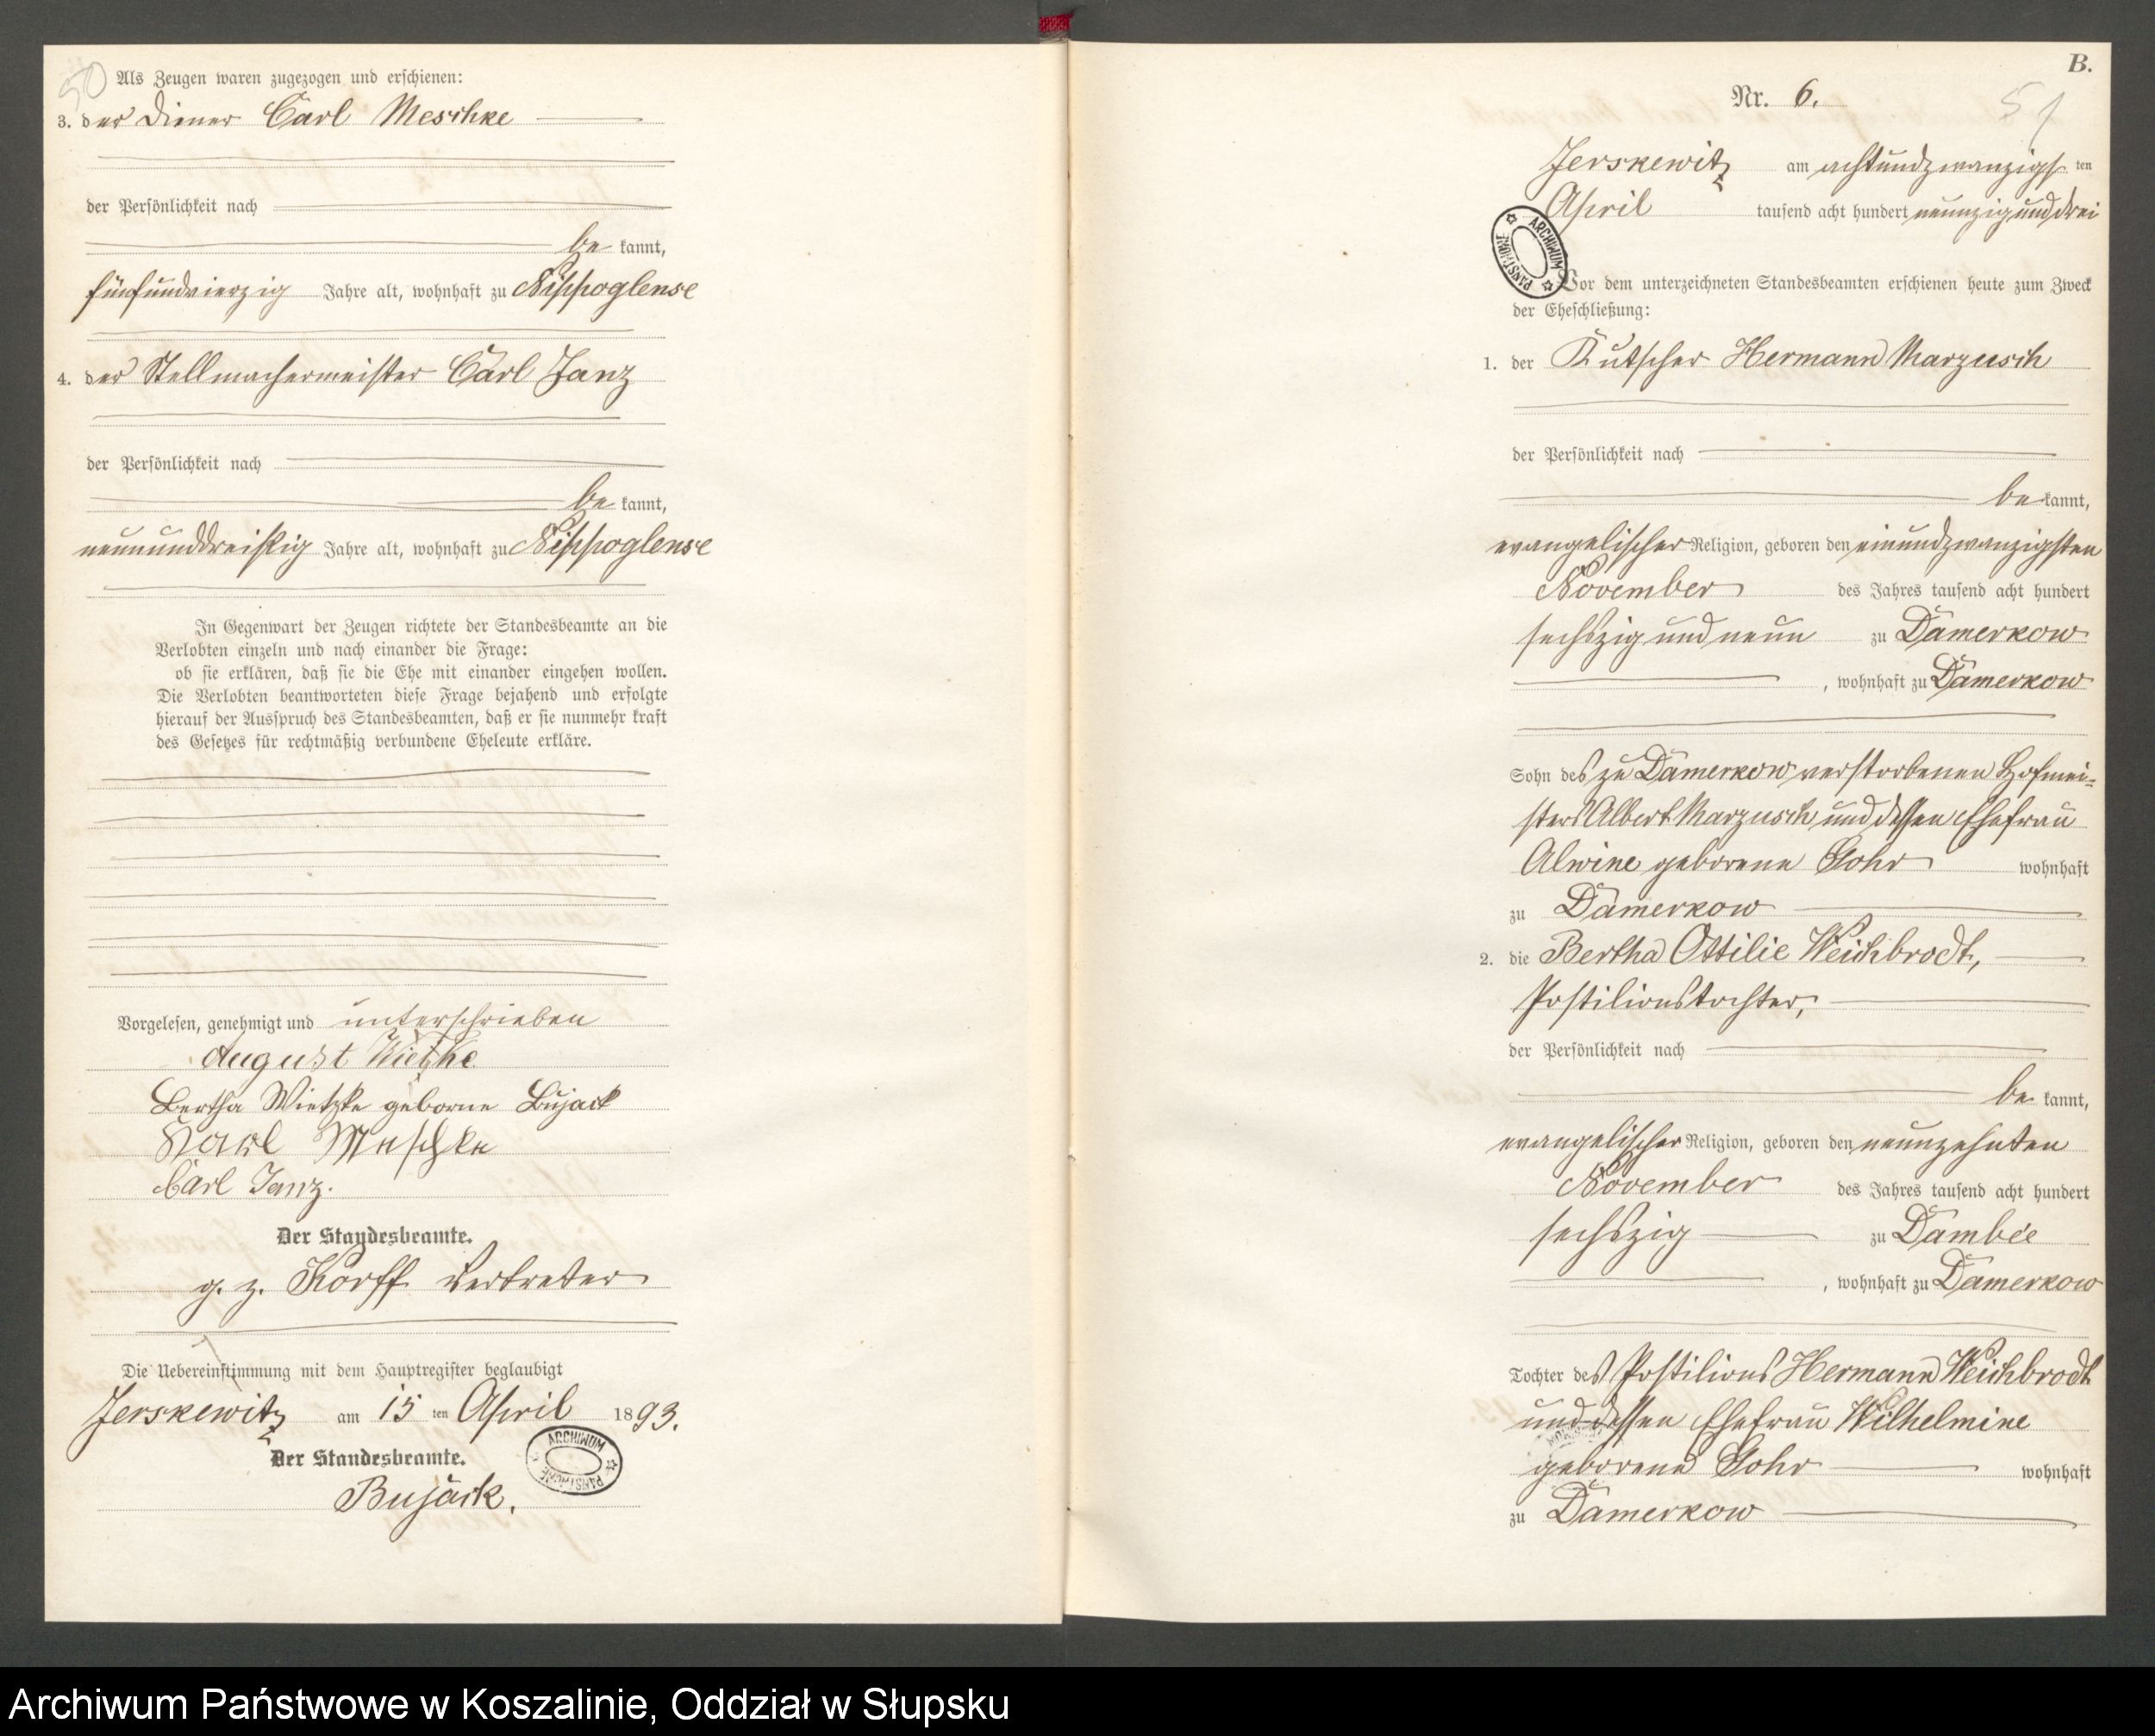 50
Als Zeugen waren zugezogen und erschienen:
3. der Diener Carl Meschke
der Persönlichkeit nach
be kannt,
fünfundvierzig Jahre alt, wohnhaft zu Nippoglense
4. der Stellmachermeister Carl Janz
der Persönlichkeit nach
be kannt,
neununddreißig Jahre alt, wohnhaft zu Nippoglense
In Gegenwart der Zeugen richtete der Standesbeamte an die
Verlobten einzeln und nach einander die Frage:
ob sie erklären, daß sie die Ehe mit einander eingehen wollen.
Die Verlobten beantworteten diese Frage bejahend und erfolgte
hierauf der Ausspruch des Standesbeamten, daß er sie nunmehr kraft
des Gesetzes für rechtmäßig verbundene Eheleute erkläre.
Vorgelesen, genehmigt und unterschrieben
August Wietzke
Bertha Wietzke geborne Bujack
Karl Meschke
Carl Janz.
Der Standesbeamte.
g. z. Korff Vertreter
Die Uebereinstimmung mit dem Hauptregister beglaubigt
Jerskewitz am 15 ten April 1893.
Der Standesbeamte.
Bujack.
ARCHIWUM PAŃSTWOWE
B.
Nr. 6.
51
Jerskewitz am achtundzwanzigs ten
April tausend acht hundert neunzig und drei
ARCHIWUM PAŃSTWOWE
Vor dem unterzeichneten Standesbeamten erschienen heute zum Zweck
der Eheschließung:
1. der Kutscher Hermann Marzusch
der Persönlichkeit nach
be kannt,
evangelischer Religion, geboren den einundzwanzigsten
November des Jahres tausend acht hundert
sechszig und neun zu Damerkow
, wohnhaft zu Damerkow
Sohn des zu Damerkow verstorbenen Hofmei=
sters Albert Marzusch und dessen Ehefrau
Alwine geborene Gohr wohnhaft
zu Damerkow
2. die Bertha Ottilie Weichbrodt,
Postilionstochter,
der Persönlichkeit nach
be kannt,
evangelischer Religion, geboren den neunzehnten
November des Jahres tausend acht hundert
sechszig zu Dambée
, wohnhaft zu Damerkow
Tochter des Postilions Hermann Weichbrodt
und dessen Ehefrau Wilhelmine
geborene Gohr wohnhaft
zu Damerkow
Archiwum Państwowe w Koszalinie, Oddział w Słupsku